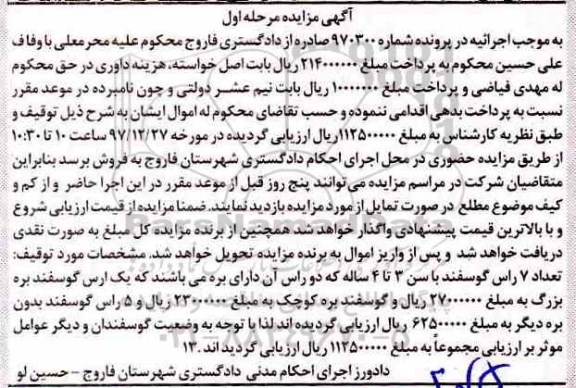 آگهی مزایده مرحله اول
به موجب اجرائیه در پرونده شماره ۹۷۰۳۰۰ صادره از دادگستری فاروج محکوم علیه محرمعلی با وفا ف
علی حسین محکوم به پرداخت مبلغ ۲۱۴۰۰۰۰۰۰ ریال بابت اصل خواسته، هزینه داوری در حق محکوم
له مهدی فیاضی و پرداخت مبلغ ۱۰۰۰۰۰۰۰ ریال بابت نیم عشر دولتی و چون نامبرده در موعد مقرر
نسبت به پرداخت بدهی اقدامی ننموده و حسب تقاضای محکوم له اموال ایشان به شرح ذیل توقیف و
طبق نظریه کارشناس به مبلغ ۱۱۲۵۰۰۰۰۰ ریال ارزیابی گردیده در مورخه ۹۷/۱۲/۲۷ ساعت ۱۰ تا ۱۰:۳۰
از طریق مزایده حضوری در محل اجرای احکام دادگستری شهرستان فاروج به فروش برسد بنابراین
متقاضیان شرکت در مراسم مزایده می توانند پنج روز قبل از موعد مقرر در این اجرا حاضر و از کم و
کیف موضوع مطلع در صورت تمایل از مورد مزایده بازدید نمایند. ضمنا مزایده از قیمت ارزیابی شروع
و با بالاترین قیمت پیشنهادی واگذار خواهد شد همچنین از برنده مزایده کل مبلغ به صورت نقدی
دریافت خواهد شد و پس از واریز اموال به برنده مزایده تحویل خواهد شد. مشخصات مورد توقیف:
تعداد ۷ راس گوسفند با سن ۳ تا ۴ ساله که دو راس آن دارای بره می باشند که یک ارس گوسفند بره
بزرگ به مبلغ ۲۷۰۰۰۰۰۰ ریال و گوسفند بره کوچک به مبلغ ۲۳۰۰۰۰۰۰ ریال و ۵ راس گوسفند بدون
بره دیگر به مبلغ ۶۲۵۰۰۰۰۰ ریال ارزیابی گردیده اند لذا با توجه به وضعیت گوسفندان و دیگر عوامل
موثر بر ارزیابی مجموعاً به مبلغ ۱۱۲۵۰۰۰۰۰ ریال ارزیابی گردیده اند. ۱۳
دادورز اجرای احکام مدنی دادگستری شهرستان فاروج - حسین لو